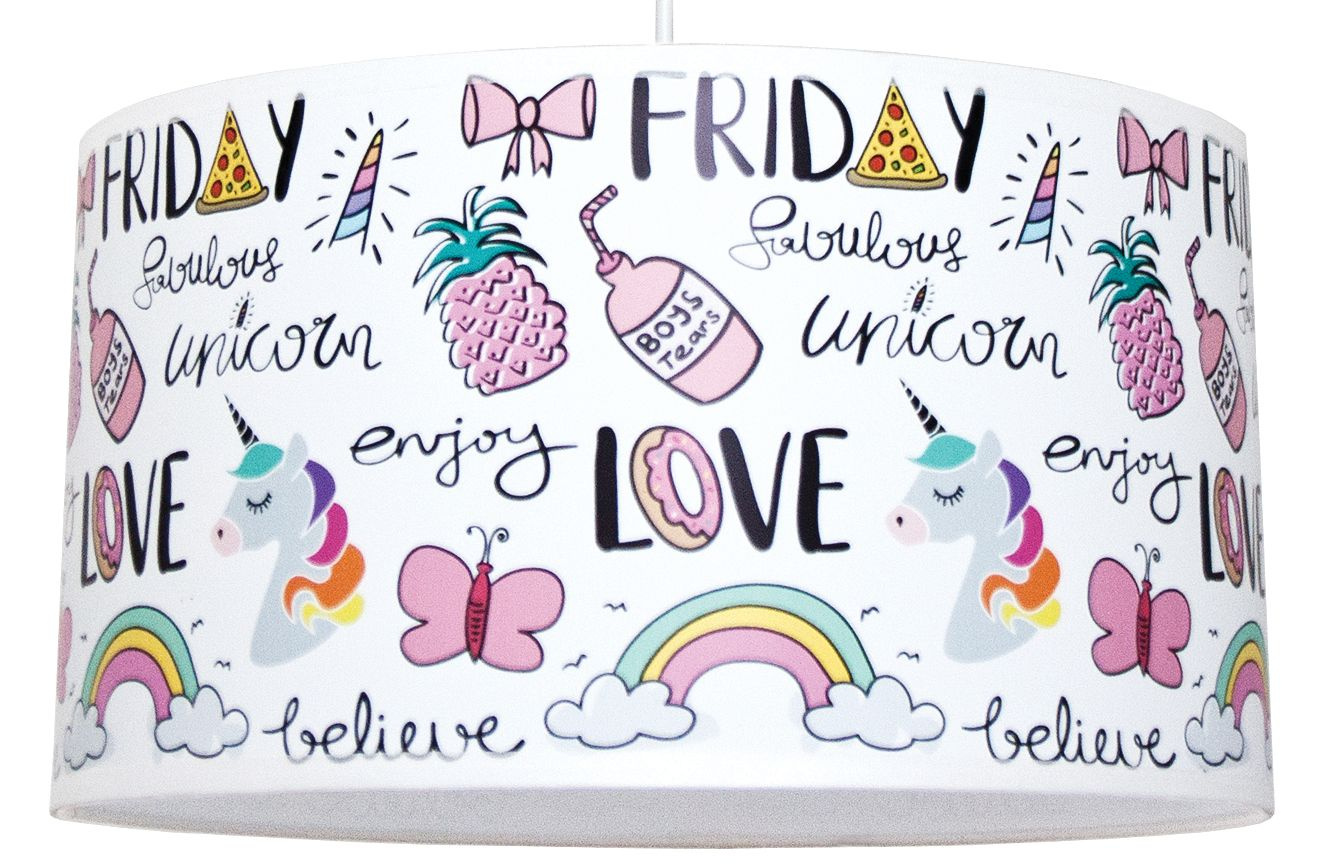 FRIDAY FRIDAY FRID
fabulous fabulous
unicorn unicorn
BOYS BOYS BOYS
Tears Tears Tears
enjoy enjoy
LOVE LOVE LOVE
believe believe